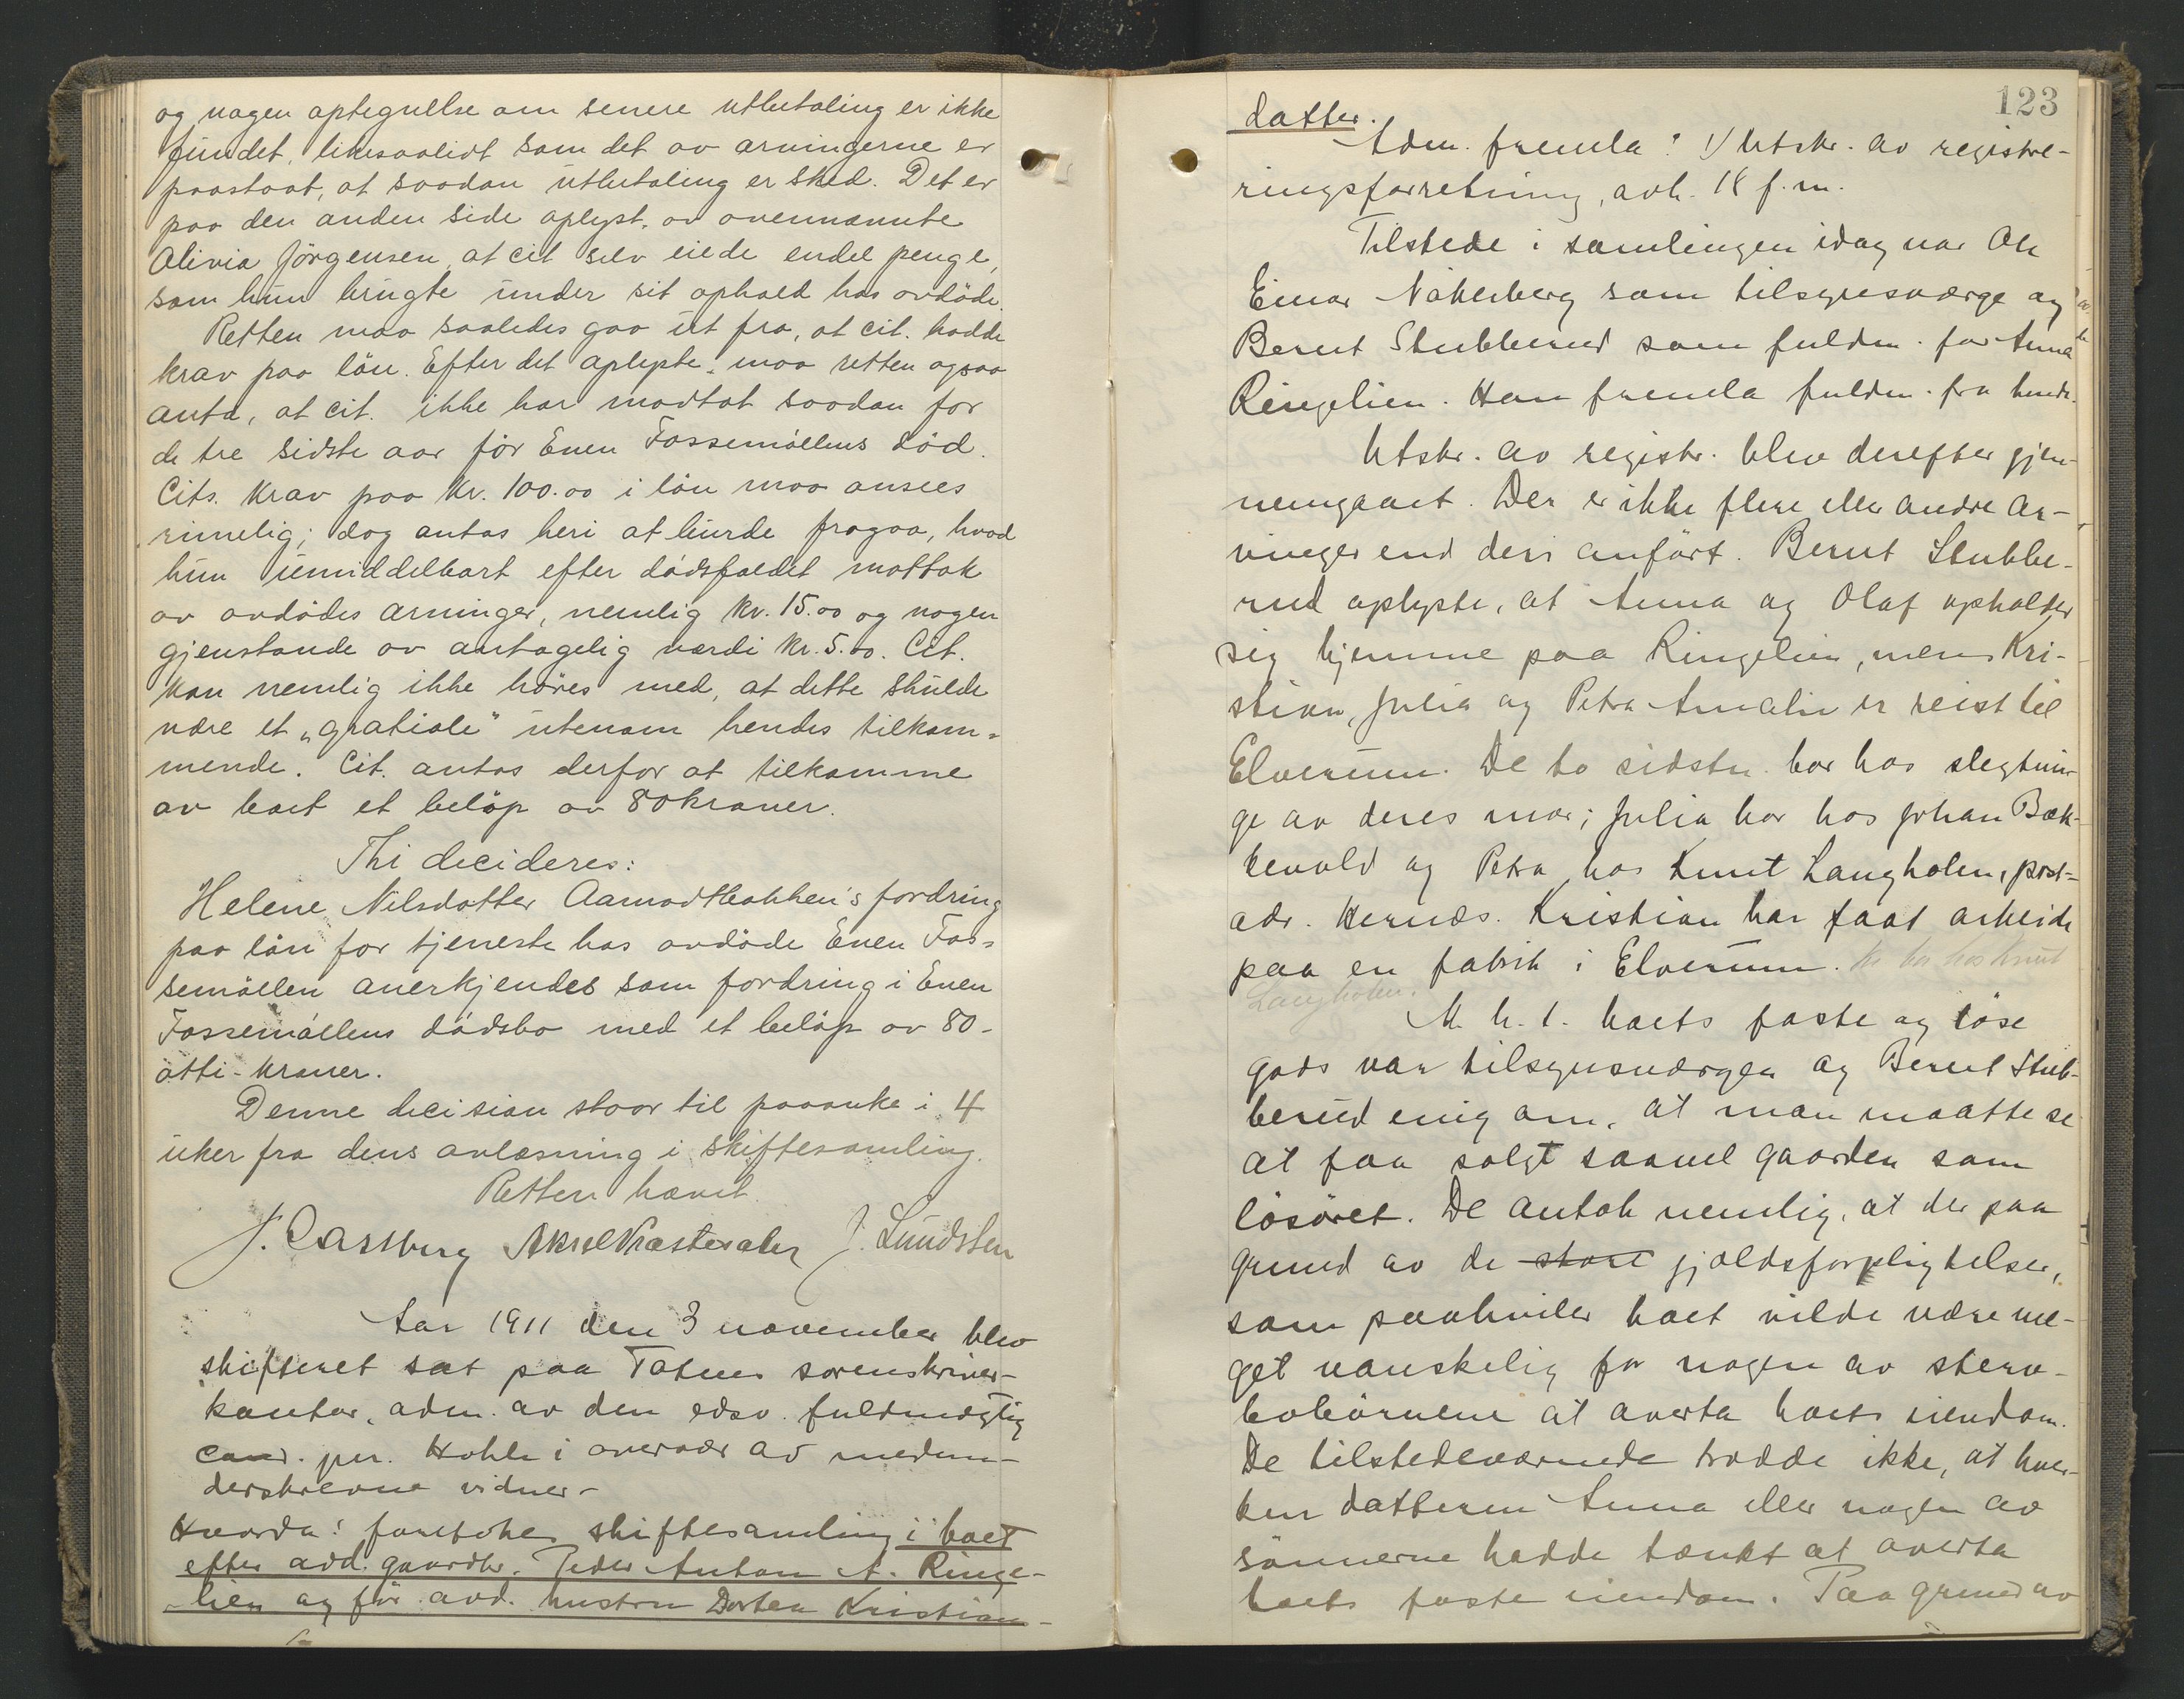 og nogen optegnelse om senere utbetaling er ikke
fundet, likesaalidt som det av arvingerne er
paastaat, at saadan utbetaling er sked. Det er
paa den anden side oplyst, av ovennævnte
Olivia Jörgensen, at cit selv eiede endel penge,
som hun brugte under sit ophold hos avdöde.
Retten maa saaledes gaa ut fra, at cit. hadde
krav paa lön. Efter det oplyste, maa retten ogsaa
anta, at cit. ikke har modtat saadan for
de tre sidste aar för Even Fossemöllens död.
Cits. krav paa kr. 100.00 i lön maa ansees
rimelig; dog antas heri at burde fragaa, hvad
hun umiddelbart efter dödsfaldet mottok
av avdödes arvinger, nemlig kr. 15.00 og nogen
gjenstande av antagelig værdi kr. 5.00. Cit.
kan nemlig ikke höres med, at dette skulde
være et „gratiale" utenom hendes tilkom-
mende. Cit. antas derfor at tilkomme
av boet et belöp av 80 kroner.
Thi decideres:
Helene Nilsdatter Aamodtbakken's fordring
paa lön for tjeneste hos avdöde Even Fos-
semöllen anerkjendes som fordring i Even
Fossemöllens dödsbo med et belöp av 80-
otti-kroner.
Denne decision staar til paaanke i 4
uker fra dens avlæsning i skiftesamling.
Retten hævet.
J. Carlsberg Aksel J. Lundsten
Aar 1911 den 3 november blev
skifteret sat paa Totens sorenskriver-
kontor, adm. av den edsv. fuldmægtig
cand. jur. Hohle i overvær av medun-
derskrevne vidner.
Hvorda: foretokes skiftesamling i boet
efter avd. gaardbr. Peder Anton A. Ringe-
lien og før avd. hustru Dortea Kristian-
123
datter.
Adm. fremla: 1/ Utskr. av registre-
ringsforretning, avh. 18 f. m.
Tilstede i samlingen idag var Ole
Einar Nökleberg som tilsynsværge og
Bernt Stubberud som fuldm. for Anna
Ringelien. Han fremla fuldm. fra hende.
Utskr. av registr. blev derefter gjen-
nemgaaet. Der er ikke flere eller andre ar-
vinger end deri anfört. Bernt Stubbe-
rud oplyste, at Anna og Olaf opholder
sig hjemme paa Ringelien, mens Kri-
stian, Julia og Petra Amalie er reist til
Elverum. De to sidstn. bor hos slegtnin-
ge av deres mor; Julia bor hos Johan Bæk-
kevold og Petra hos Knut Langholen, post-
adr. Hernæs. Kristian har faat arbeide
paa en fabrik i Elverum. bor hos Knut
Langholen.
M. h. t. boets faste og löse
gods var tilsynsværgen og Bernt Stub-
berud enig om, at man maatte se
at faa solgt saavel gaarden som
lösöret. De antok nemlig, at der paa
grund av de store gjældsforpligtelser,
som paahviler boet vilde være me-
get vanskelig for nogen av sterv-
bobörnene at overta boets eiendom.
De tilstedeværende trodde ikke, at hver-
ken datteren Anna eller nogen av
sönnerne hadde tænkt at overta
boets faste eiendom. Paa grund av